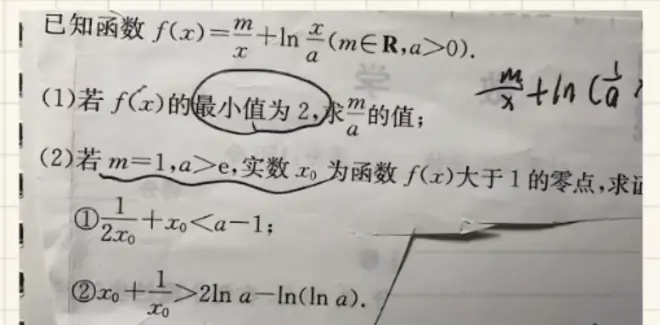 已知函数 f(x)=m/x+ln x/a(m∈R,a>0).
(1)若 f(x)的最小值为 2,求m/a的值;
m/x+ln(1/a
(2)若 m=1,a>e,实数 x₀ 为函数 f(x)大于 1 的零点,求证
①1/2x₀+x₀<a-1;
②x₀+1/x₀>2ln a-ln(ln a).